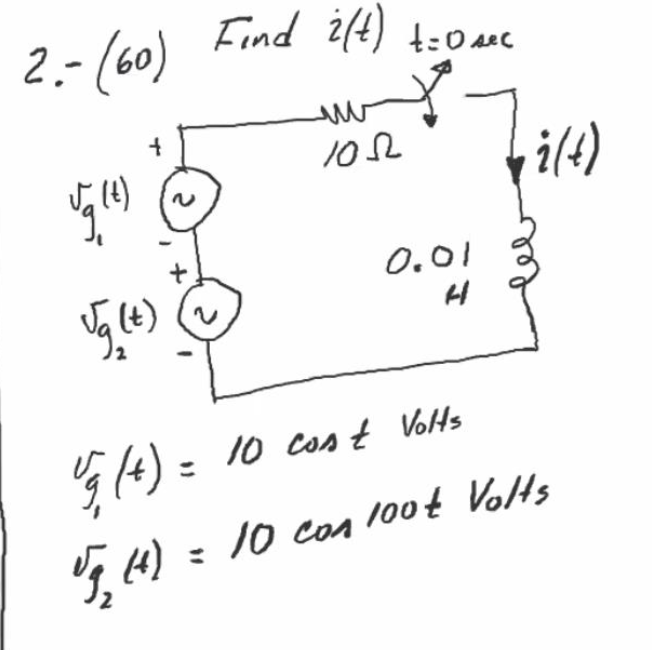 2.- (60) Find i(t) t=0 sec
+
10 Ω
i(t)
vg₁(t)
-
+
0.01
H
vg₂(t)
-
vg₁(t) = 10 cos t Volts
vg₂(t) = 10 cos 100t Volts